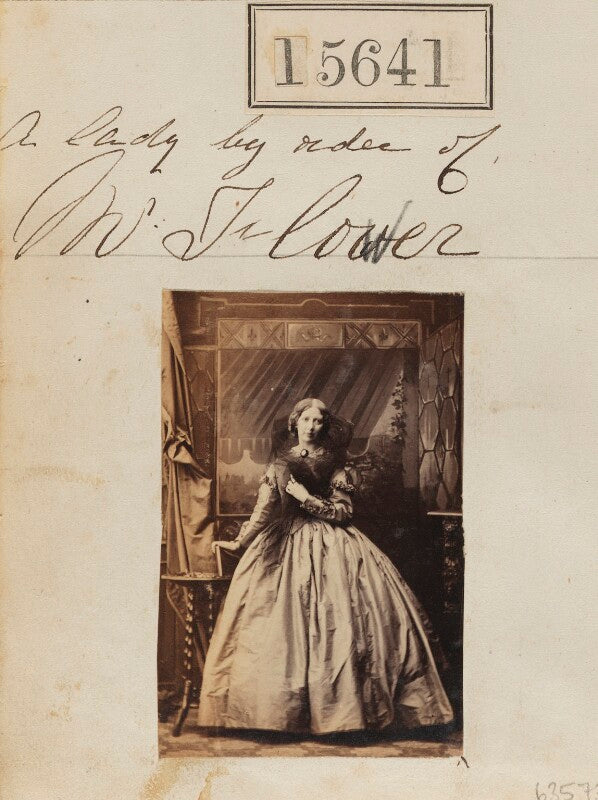 15641
A lady by order of
Mr. Flower